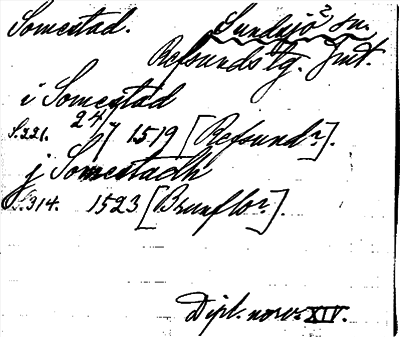 Somestad. Sundsjö sn.
Refsunds tg. Jmt.
i Somestad
S.221. 24/7 1519 [Refsund?].
j Somestadh
S.314. 1523 [Brunflo?].
Dipl. norv. XIV.